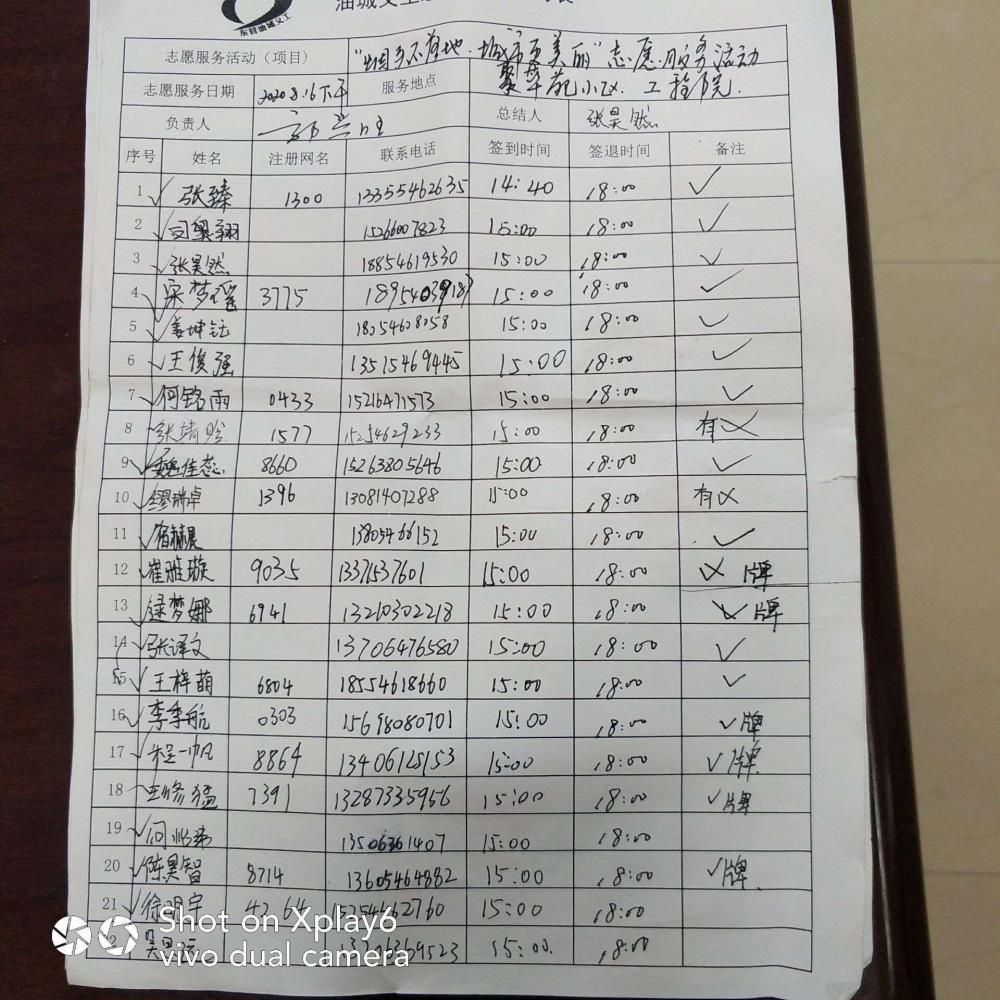 东营油城义工
志愿服务活动（项目） "烟头不落地·城市更美丽"志愿服务活动
志愿服务日期 2020.8.16下午 服务地点 聚苹苑小区、工程院
负责人 总结人 张昊然
序号 姓名 注册网名 联系电话 签到时间 签退时间 备注
1 ✓ 张臻 1300 13355462635 14:40 18:00 ✓
2 ✓ 15266007823 15:00 18:00 ✓
3 ✓ 张昊然 18854619530 15:00 18:00 ✓
4 ✓ 宋梦瑶 3775 15:00 18:00 ✓
5 ✓ 姜坤钰 18054608058 15:00 18:00 ✓
6 ✓ 王俊强 13515469445 15:00 18:00 ✓
7 ✓ 何铭雨 0433 15216471573 15:00 18:00 ✓
8 张靖晗 1577 15254629233 15:00 18:00 有
9 ✓ 魏佳蕊 8660 15263805646 15:00 18:00 ✓
10 ✓ 缪瑞卓 1396 13081407288 15:00 18:00 有
11 ✓ 宿赫晨 13805466152 15:00 18:00 ✓
12 ✓ 崔雅璇 9035 13371537601 15:00 18:00 牌
13 ✓ 逯梦娜 6941 13210302218 15:00 18:00 ✓ 牌
14 ✓ 张译文 13706476580 15:00 18:00 ✓
15 ✓ 王梓萌 6804 18554618660 15:00 18:00 ✓
16 ✓ 李季航 0303 15698080701 15:00 18:00 ✓ 牌
17 ✓ 程一帆 8864 13406125153 15:00 18:00 ✓ 牌
18 王修猛 7391 13287335956 15:00 18:00 ✓ 牌
19 ✓ 13506361407 15:00 18:00
20 ✓ 陈昊智 8714 13605464882 15:00 18:00 ✓ 牌
21 ✓ 徐明宇 4264 15254662760 15:00 18:00
13706369523 15:00 18:00
Shot on Xplay6
vivo dual camera